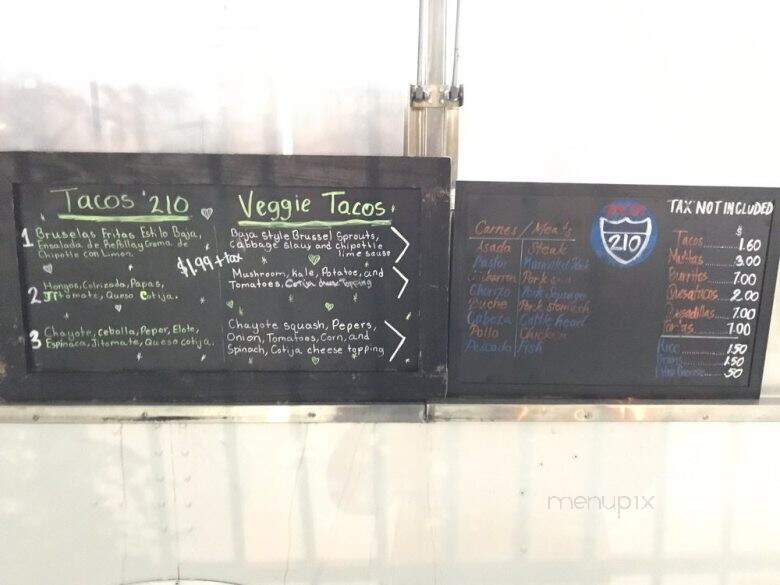 Tacos '210
1 Bruselas Fritas Estilo Baja,
Ensalada de Repollo y Crema de
Chipotle con Limon.
$1.99 + tax
2 Hongos, Colrizada, Papas,
Jitomate, Queso Cotija.
3 Chayote, cebolla, Peper, Elote,
Espinaca, Jitomate, Queso cotija.
Veggie Tacos
Baja style Brussel Sprouts,
Cabbage slaw and chipottle
lime sause
Mushroom, kale, Potatoe, and
Tomatoes, Cotija cheese topping
Chayote squash, Peppers,
Onion, Tomatoes, Corn, and
Spinach, Cotija cheese topping
Carnes / Meats
Asada Steak
Pastor
Pork
Buche Pork stomach
Cabeza Cattle head
Pollo Chicken
Pescado Fish
210
TAX NOT INCLUDED
$
Tacos 1.60
Mulitas 3.00
Burritos 7.00
2.00
7.00
Tortas 7.00
Rice 1.50
Beans 1.50
.50
menupix